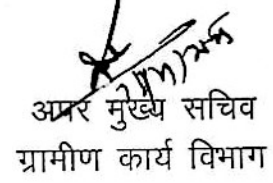 अपर मुख्य सचिव
ग्रामीण कार्य विभाग